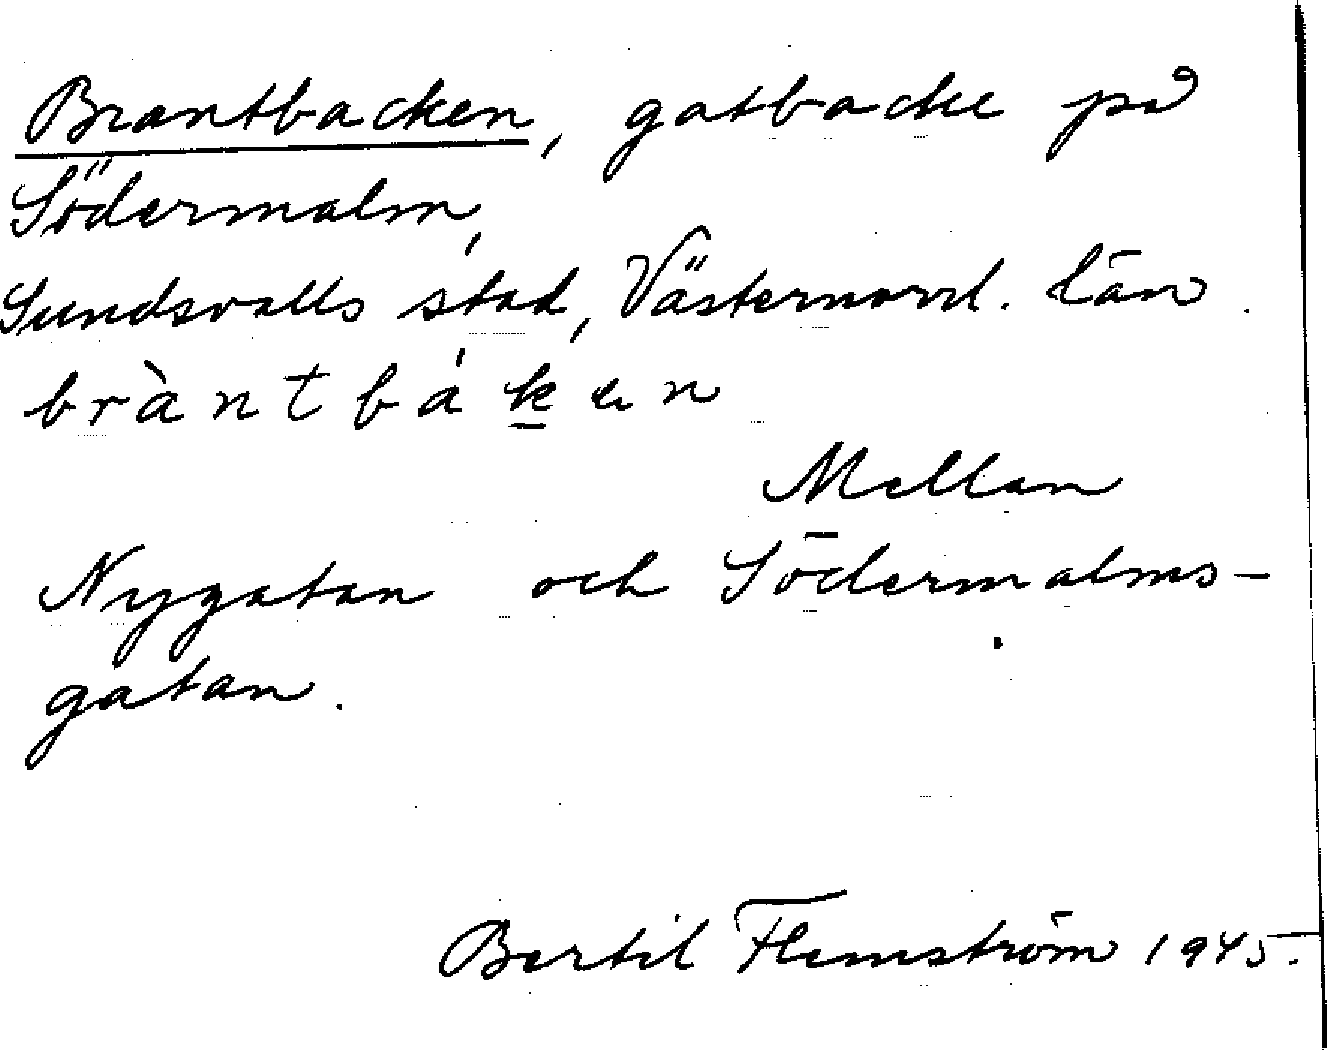 Brantbacken, gatbacke på
Södermalm,
Sundsvalls stad, Västernorrl. län.
bràntbáken
Mellan
Nygatan och Södermalms-
gatan.
Bertil Flemström 1945.